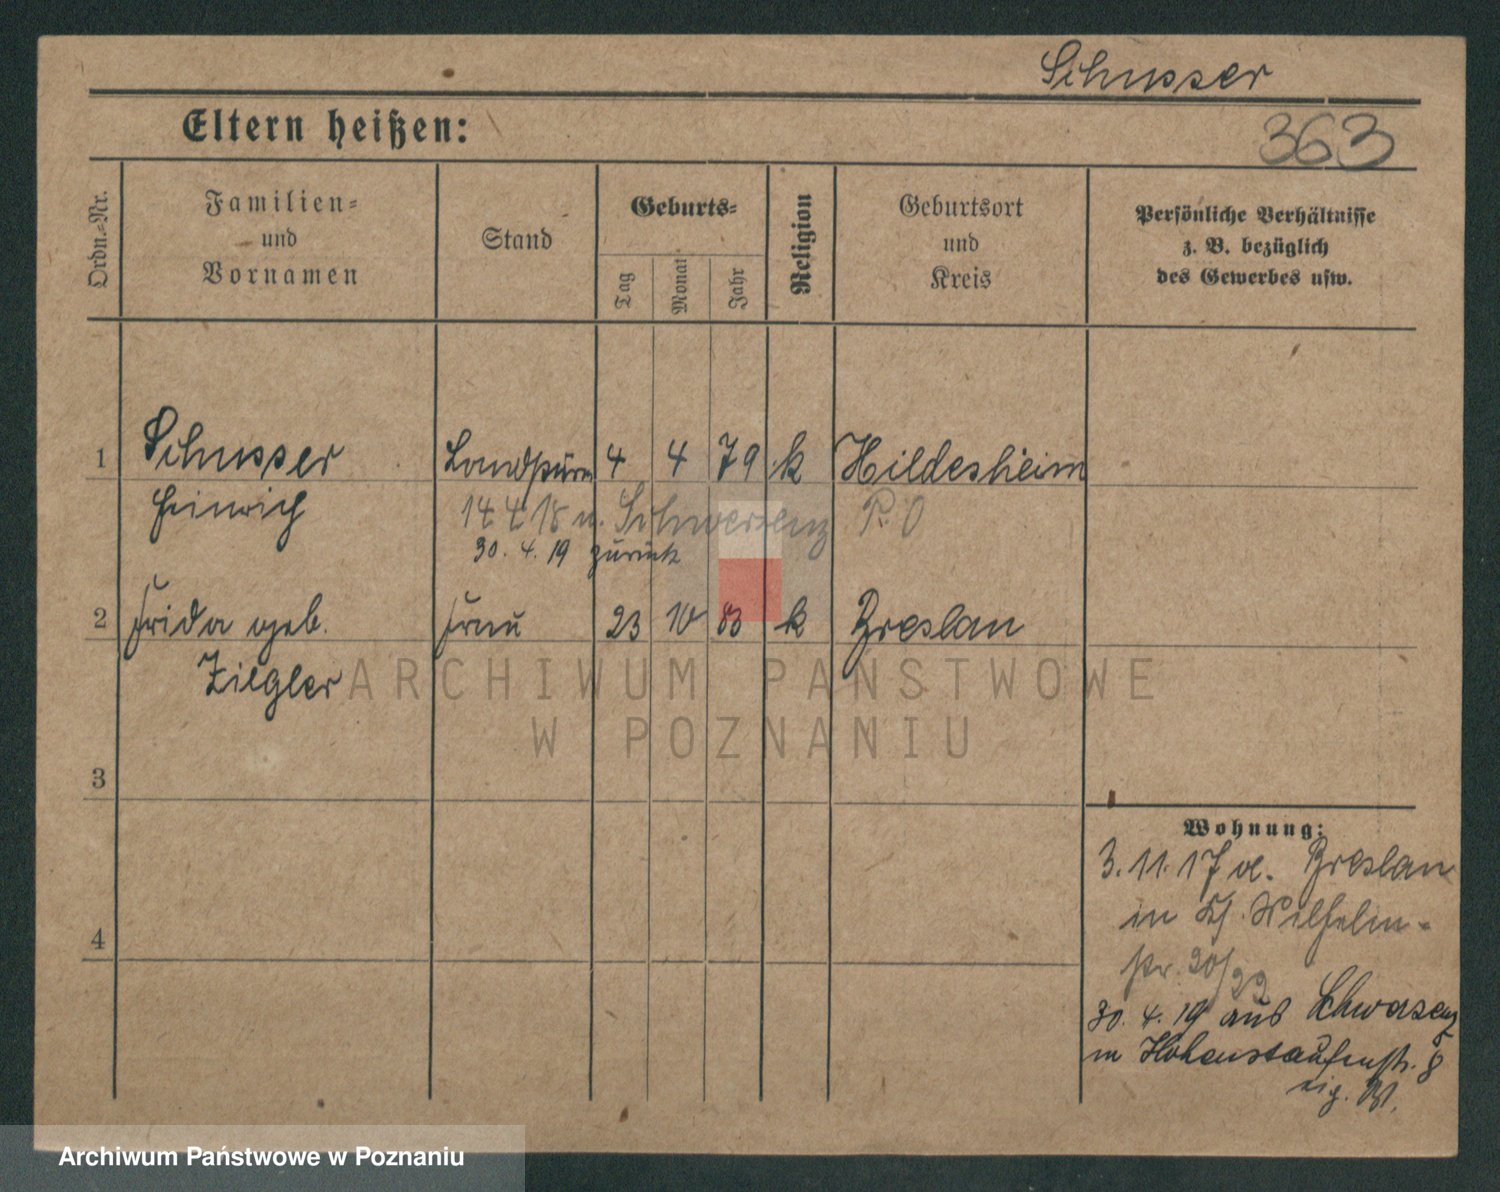 Schusser
Eltern heißen:
363
Ordn.-Nr.
Familien-
und
Vornamen
Stand
Geburts-
Tag
Monat
Jahr
Religion
Geburtsort
und
Kreis
Persönliche Verhältnisse
z. B. bezüglich
des Gewerbes usw.
1 Schusser 4 4 79 k Hildesheim
Heinrich 14 4 18 n. Schwersenz P. O
30. 4. 19 zurück
2 Frida geb. Frau 23 10 83 k Breslau
Ziegler
ARCHIWUM PAŃSTWOWE
W POZNANIU
3
4
Wohnung:
3. 11. 17 v. Breslau
in Wilhelm-
str. 20/22
30. 4. 19 aus
in Hohenstaufenstr. 8
eig. W.
Archiwum Państwowe w Poznaniu